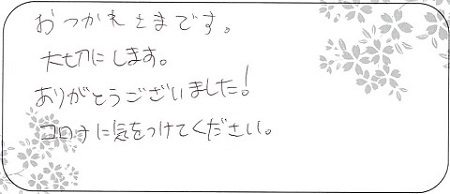 おつかれさまです。
大切にします。
ありがとうございました!
コロナに気をつけてください。